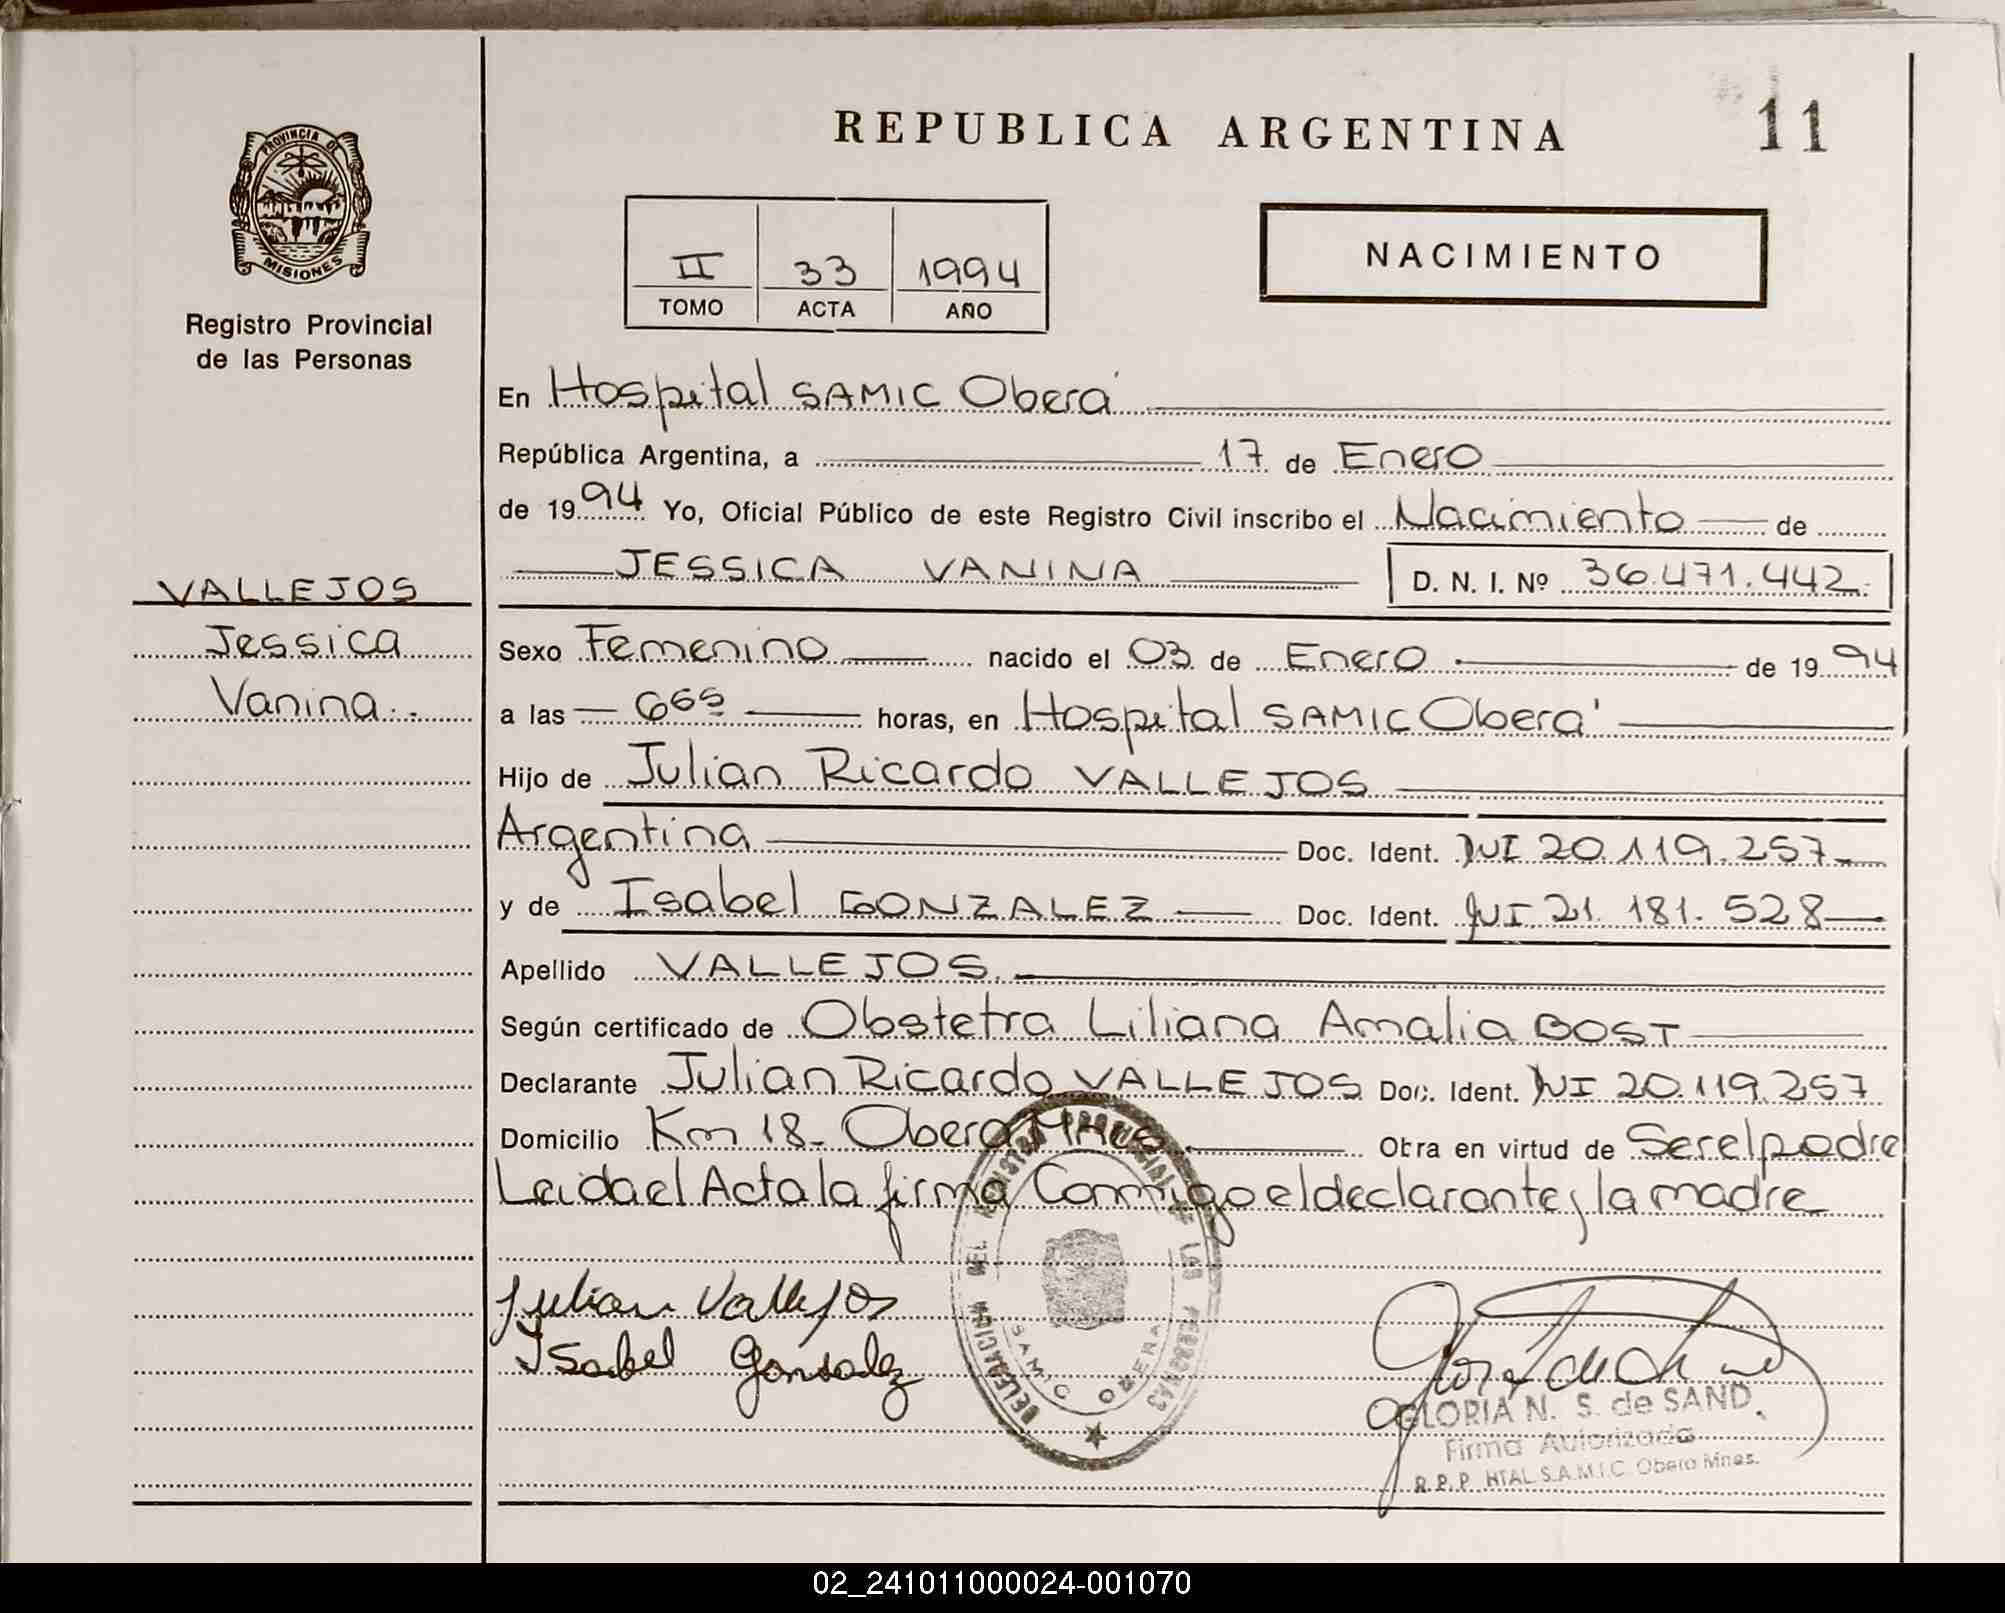 REPUBLICA ARGENTINA
11
PROVINCIA DE MISIONES
Registro Provincial
de las Personas
II 33 1994
TOMO ACTA AÑO
NACIMIENTO
En Hospital SAMIC Oberá
República Argentina, a 17 de Enero
de 1994 Yo, Oficial Público de este Registro Civil inscribo el Nacimiento de
JESSICA VANINA D. N. I. Nº 36.471.442.
VALLEJOS
Jessica
Vanina..
Sexo Femenino nacido el 03 de Enero de 1994
a las 6 05 horas, en Hospital SAMIC Oberá
Hijo de Julian Ricardo VALLEJOS
Argentina Doc. Ident. DNI 20.119.257
y de Isabel GONZALEZ Doc. Ident. DNI 21.181.528
Apellido VALLEJOS.
Según certificado de Obstetra Liliana Amalia BOST
Declarante Julian Ricardo VALLEJOS Doc. Ident. DNI 20.119.257
Domicilio Km 18- Obera Mnes. Obra en virtud de Ser el padre
Leida el Acta la firma Conmigo el declarante y la madre
Julian Vallejos
Isabel Gonsalez
DELEGACION DEL REGISTRO PROVINCIAL DE LAS PERSONAS
SAMIC OBERA
GLORIA N. S. de SAND.
Firma Autorizada
R.P.P. HTAL. S.A.M.I.C. Obera Mnes.
02_241011000024-001070